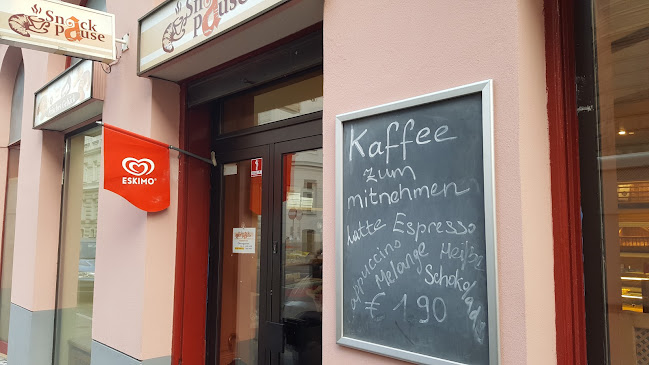 Snack
Pause
Snack
Pause
ESKIMO
Kaffee
zum
mitnehmen
Latte Espresso
Cappuccino
Melange Heiße
Schokolade
€ 1,90